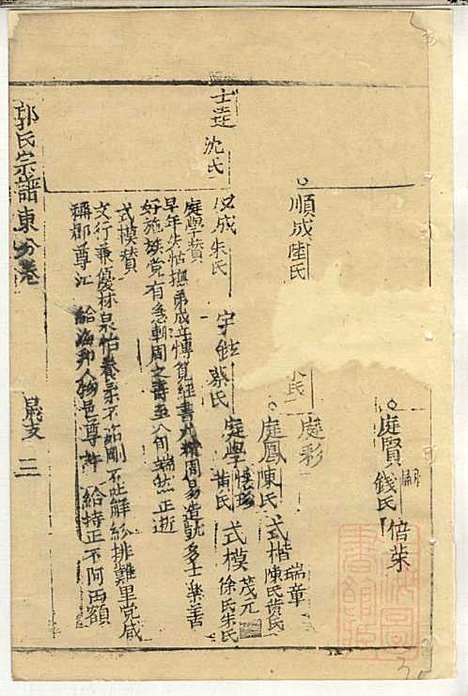 庭賢 錢氏 倍柒
順成 陸氏
氏 庭彩
庭鳳 陳氏 式楷 瑞章 陳氏 黄氏
士逵 沈氏
成 朱氏 宇 蔡氏 庭學 黄氏 式模 茂元 徐氏 朱氏
庭學贊
早年失怙撫弟成立博覽經書尤精周易造就多士樂善
好施族党有急輙周之壽至八旬端然正逝
式模贊
文行兼優林泉怡養柔不茹剛不吐解紛排難里党咸
稱郡尊江 給海邦人物邑尊許 給持正不阿両額
郭氏宗譜東分卷 三